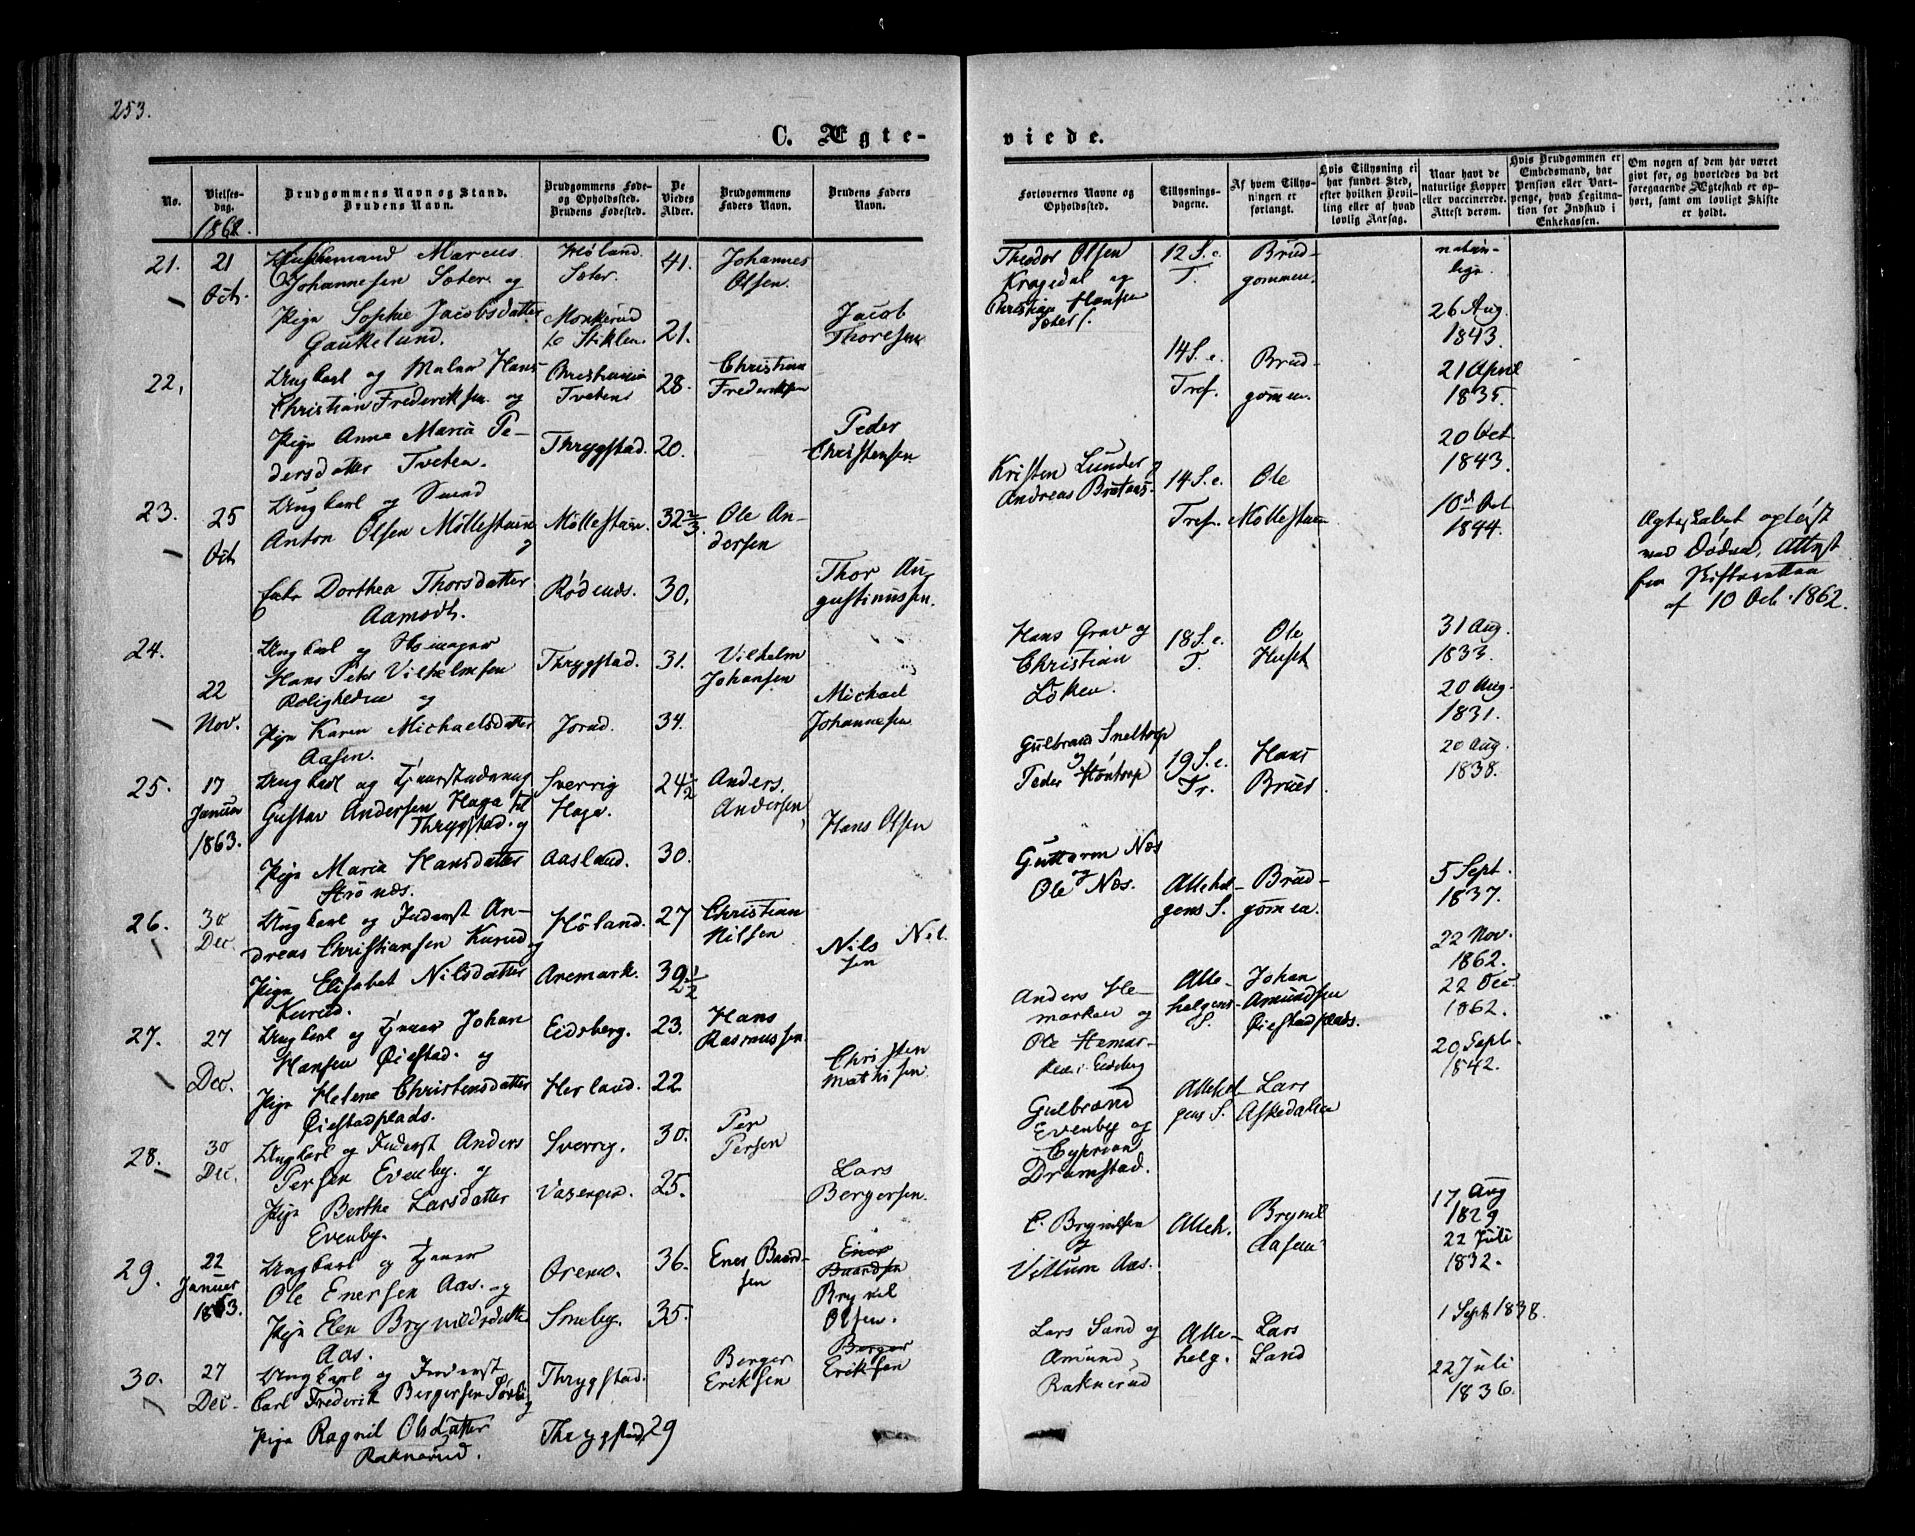 253.
C. Ægte-
No.
Vielses-
dag.
1862.
Brudgommens Navn og Stand.
Brudens Navn.
Brudgommens Føde-
og Opholdssted.
Brudens Fødested.
De
Viedes
Alder.
Brudgommens
Faders Navn.
Brudens Faders
Navn.
21.
21
Oct.
Husemand Marcus
Johannesen Sæter og
Pige Sophie Jacobsdatter
Gaukelund.
Høland
Sæter.
41.
21.
Johannes
Olsen.
Jacob
Thoresen
22.
Ungkarl og Maler Hans
Christian Frederiksen og
Pige Anne Maria Pe-
dersdatter Tveten.
Christiania
Tveten
Thrygstad.
28.
20.
Christian
Frederiksen
Peder
Christensen
23.
25
Oct
Ungkarl og Smed
Anton Olsen Möllestuen
Enke Dorthea Thorsdatter
Aamodt.
Möllestuen.
Rödenæs.
32 2/3
30.
Ole An-
dersen
Thor Au-
gustinussen.
24.
22
Nov.
Ungkarl og
Hans Peter Vilhelmsen
Roligheden og
Pige Karen Michaelsdatter
Aasen.
Thrygstad.
31.
34.
Vilhelm
Johansen
Michael
Johannesen
25.
17
Januar
1863.
Ungkarl og
Gustav Andersen Haga til
Thrygstad og
Pige Maria Hansdatter
Strönæs.
Sverrig
Haga.
Aasland.
24 1/2
30.
Anders
Andersen
Hans Olsen
26.
30
Dec.
Ungkarl og Inderst An-
dreas Christiansen Kurud og
Pige Elisabet Nilsdatter
Kurud.
Höland.
Aremark.
27
39 1/2
Christian
Nilsen
Nils Nil-
sen
27.
27
Dec.
Ungkarl og Tjener Johan
Hansen Öiestad. og
Pige Helene Christensdatter
Öiestadplads.
Eidsberg.
Herland.
23.
22
Hans
Rasmussen.
Christen
Mathisen
28.
30
Dec.
Ungkarl og Inderst Anders
Persen Evenby. og
Pige Berthe Larsdatter
Evenby.
Sverrig.
30.
25.
Per
Persen
Lars
Bergersen.
29.
22
Januar
1863.
Ungkarl og Tjener
Ole Enersen Aas. og
Pige Elen Brynildsdatter
Aas.
36.
35.
Ener Baard-
sen
Ener
Baardsen
Brynil
Olsen.
30.
27
Dec.
Ungkarl og Inderst
Carl Frederik Bergersen
Pige Ragnil Olsdatter
Raknerud.
Thrygstad.
Thrygstad
29
Berger
Eriksen
Berger
Eriksen
viede.
Forlovernes Navne og
Opholdssted.
Tillysnings-
dagene.
Af hvem Tillys-
ningen er
forlangt.
Hvis Tillysning ei
har fundet Sted,
efter hvilken Bevil-
ling eller af hvad
lovlig Aarsag.
Naar havt de
naturlige Kopper
eller vaccinerede.
Attest derom.
Hvis Brudgommen er
Embedsmand, har
Pension eller Vart-
penge, hvad Legitma-
tion for Indskud i
Enkekassen.
Om nogen af dem har været
gift før, og hvorledes da det
foregaaende Ægteskab er op-
hørt, samt om lovligt Skifte
er holdt.
Theodor Olsen
Kragedal og
Christian Hansen
12 S. e.
T.
Brud-
gommen.
naturlige.
26 Aug.
1843.
14 S. e.
Tref.
Brud-
gomen.
21 April
1835.
20 Oct
1843.
Kristen Lunder og
Andreas Bråten
14 S. e.
Tref.
Ole
Möllestuen
10d Oct
1844.
Ægteskabet oplöst
ved Döden, Attest
fra Skifteretten
af 10 Oct. 1862.
Hans Grav og
Christian
Löken.
18 S. e.
T.
Ole
Huset
31 Aug.
1833.
20 Aug.
1831.
Gulbrand Sneltorp
og
Peder Höntorp
19 S. e.
Tr.
Hans
Bruer.
20 Aug.
1838.
Guttorm Næs
og
Ole Næs.
Allehel-
gens S.
Brud-
gomen.
5 Sept.
1837.
22 Nov.
1862.
Anders He-
marken og
Ole Hemar-
ken i Eidsberg
Alle-
helgens
S.
Johan
Amundsen
Öiestadplads.
22 Dec
1862.
20 Sept.
1842.
Gulbrand
Evenby og
Cyprian
Dramstad.
Allehel-
gens S.
Lars
Askedalen
E. Brynilsen
og
Villum Aas.
Alleh.
Brynil
Aasen
17 Aug
1829
22 Juli
1832.
Lars Sand og
Amund
Raknerud
Alle-
helg.
Lars
Sand
1 Sept 1838.
22 Juli
1836.